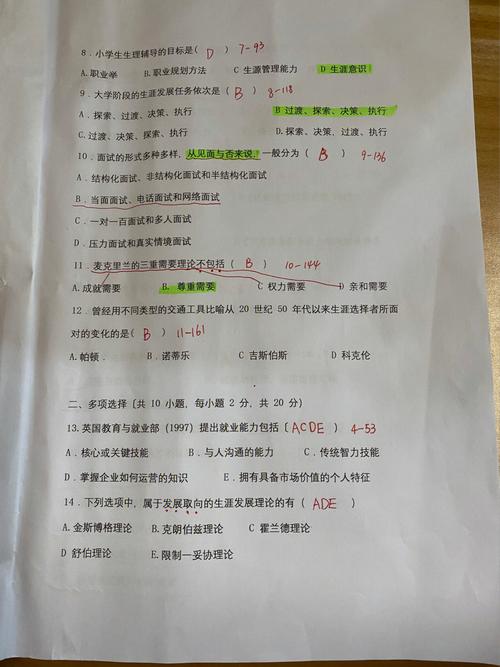 8．小学生生理辅导的目标是( D ) 7-93
A.职业举 B.职业规划方法 C 生源管理能力 D 生涯意识
9．大学阶段的生涯发展任务依次是( B ) 8-118
A．探索、过渡、决策、执行 B 过渡、探索、决策、执行
C.过渡、决策、探索、执行 D.探索、决策、过渡、执行
10．面试的形式多种多样，从见面与否来说，一般分为( B ) 9-136
A．结构化面试、非结构化面试和半结构化面试
B．当面面试、电话面试和网络面试
C．一对一百面试和多人面试
D．压力面试和真实情境面试
11．麦克里兰的三重需要理论不包括( B ) 10-144
A.成就需要 B. 尊重需要 C 权力需要 D 亲和需要
12．曾经用不同类型的交通工具比喻从 20 世纪 50 年代以来生涯选择者所面
对的变化的是( B ) 11-161
A.帕顿． B．诺蒂乐 C 吉斯伯斯 D 科克伦
二、多项选择〔共 10 小题，每小题 2 分，共 20 分）
13.英国教育与就业部（1997）提出就业能力包括〔ACDE ) 4-53
A．核心或关键技能 B．与人沟通的能力 C．传统智力技能
D．掌握企业如何运营的知识 E．拥有具备市场价值的个人特征
14．下列选项中，属于发展取向的生涯发展理论的有 ( ADE )
A.金斯博格理论 B.克朗伯兹理论 C 霍兰德理论
D 舒伯理论 E.限制一妥协理论